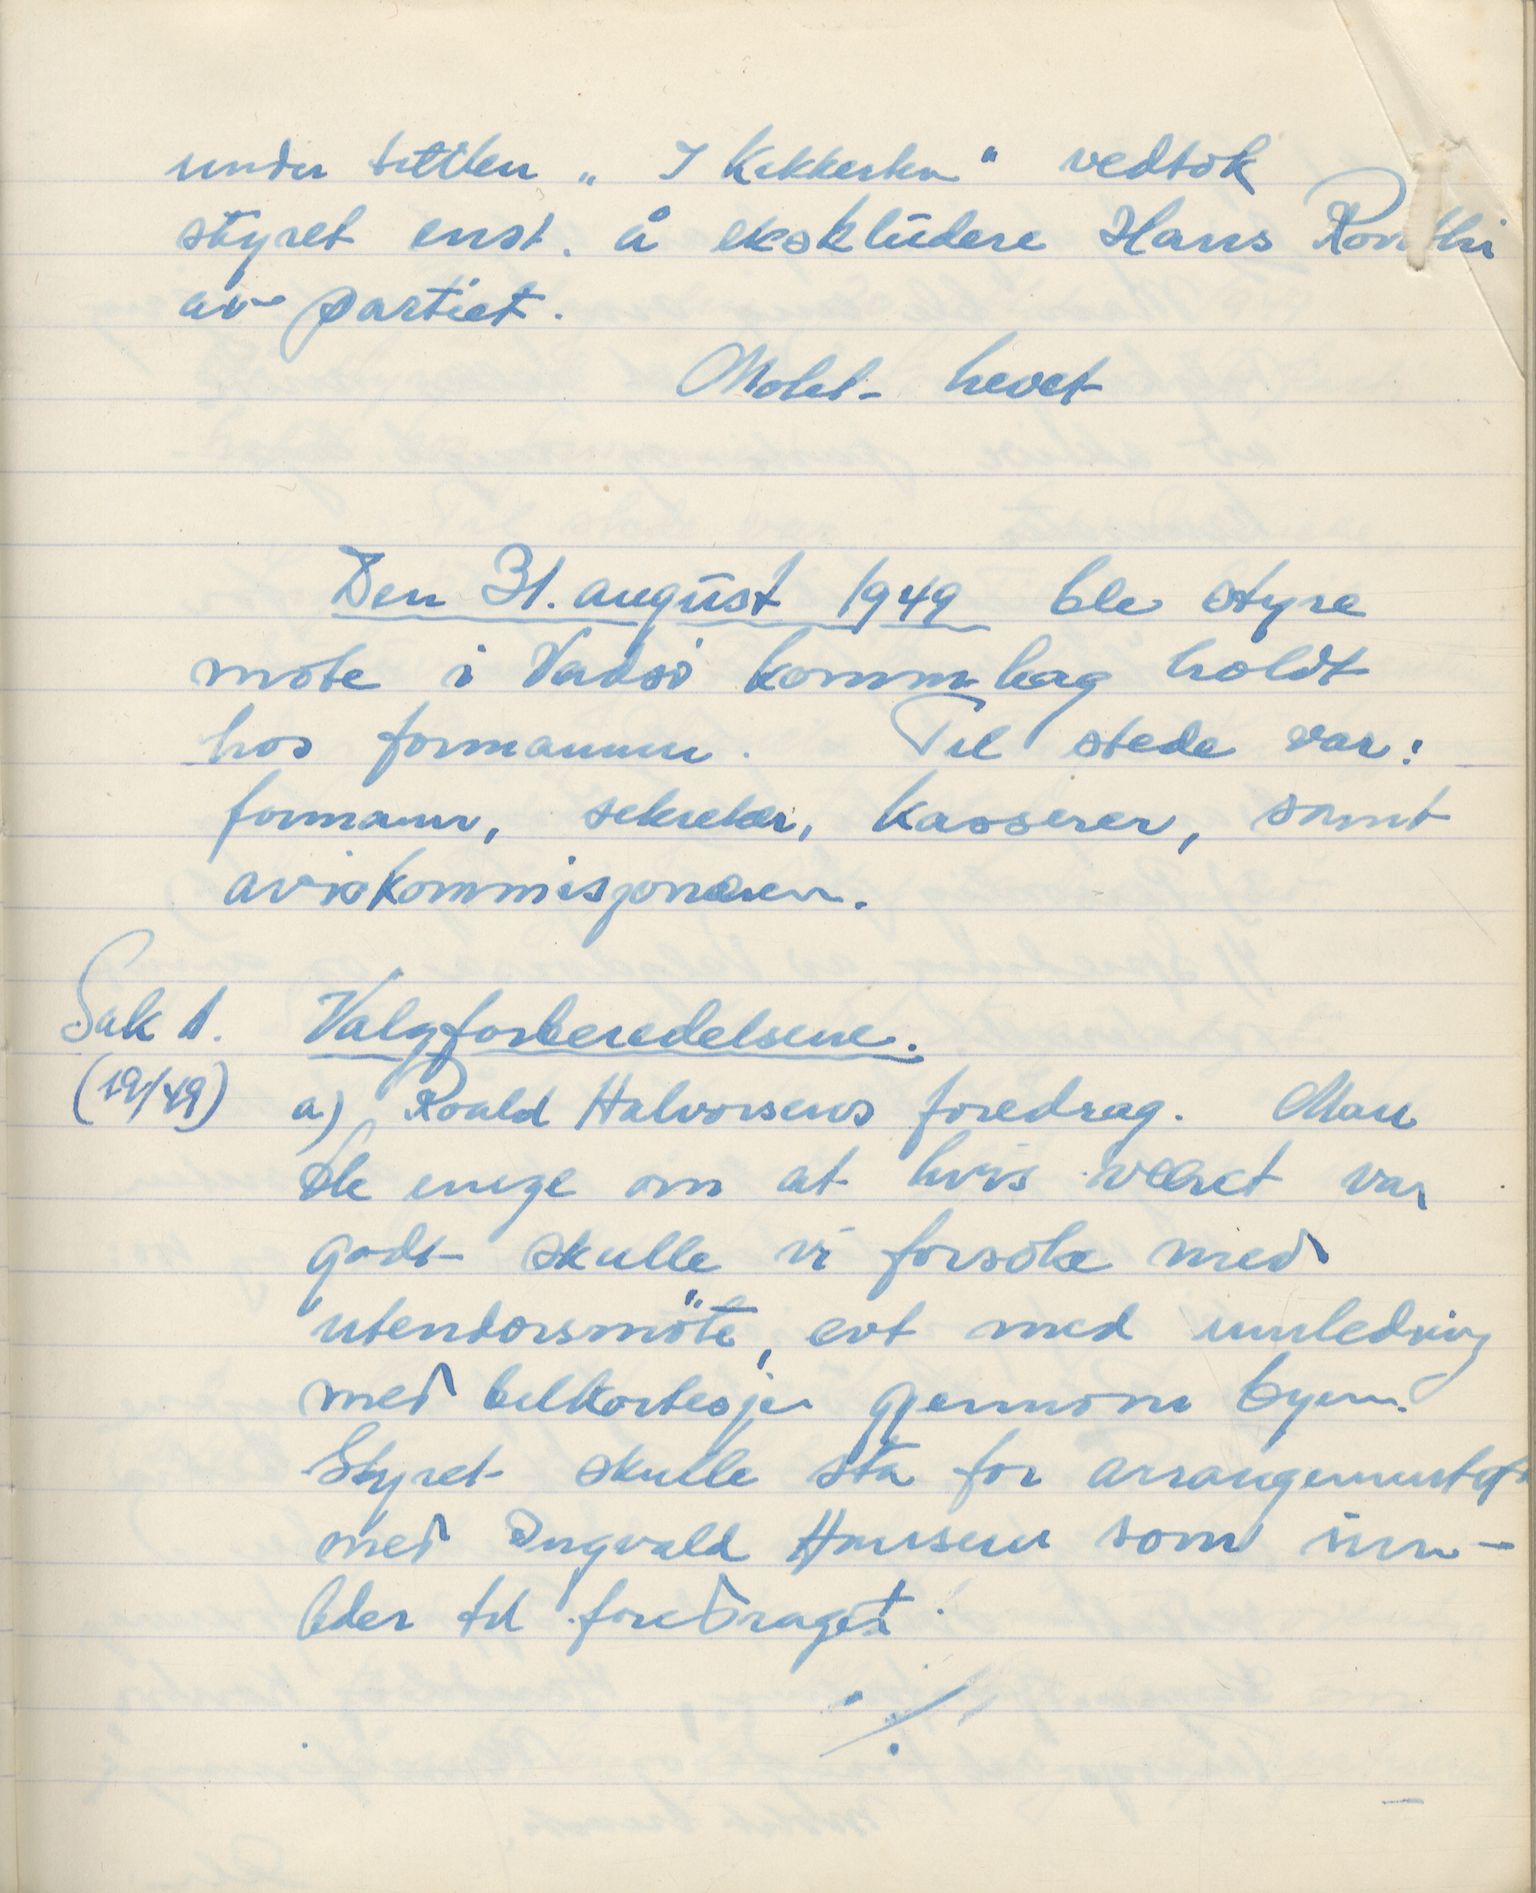 under titlen „ I Kikkerten " vedtok
styret enst. å ekskludere Hans
av partiet.
Møtet hevet
Den 31. august 1949 ble styre
møte i Vadsö komm.lag holdt
hos formannen. Til stede var:
formann, sekretær, kasserer, samt
aviskommisjonæren.
Sak 1. Valgforberedelsene.
(19/49) a) Roald Halvorsens foredrag. Man
ble enige om at hvis været var
godt skulle vi forsøke med
utendørsmöte, evt med innledning
med bilkortesje gjennom byen.
Styret skulle stå for arrangementet
med Ingvald Hansen som inn-
leder til foredraget.
./.